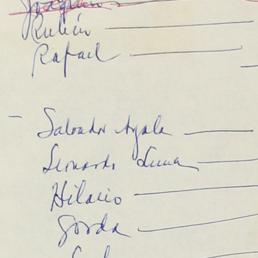 Joaquin
Rubén
Rafael
Salvador Ayala
Leonardo Luna
Hilacio
Gorda